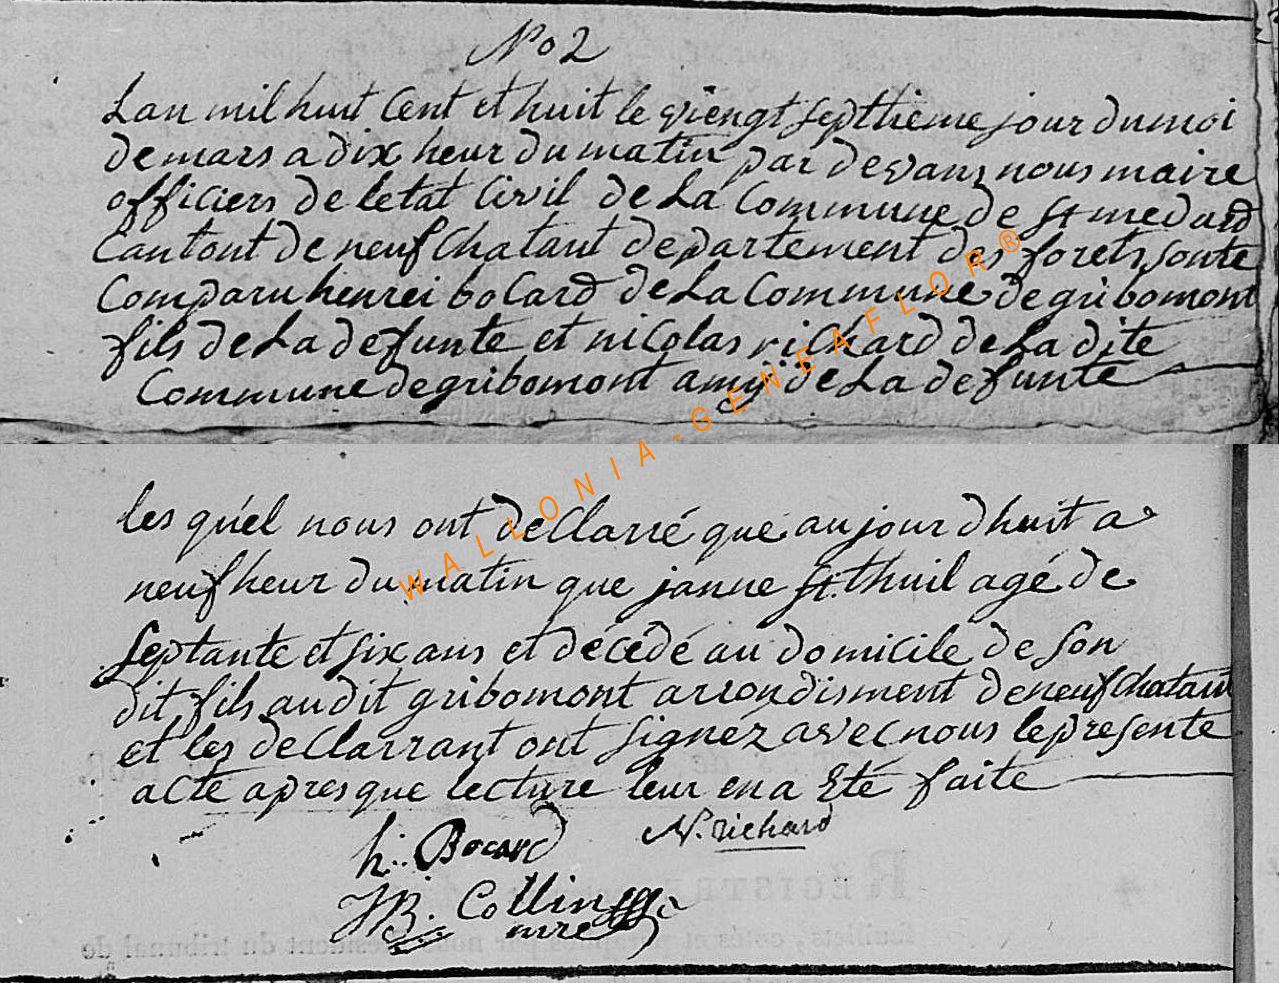 No 2
Lan mil huit Cent et huit le viengt septhieme jour du moi
de mars a dix heur du matin par devans nous maire
officiers de letat Civil de La Commune de St medard
Cantont de neufchatant departement des forets sonte
Comparu henrei bocard de La Commune de gribomont
fils de La defunte et nicolas richard de La dite
Commune de gribomont amÿ de La defunte
les quel nous ont declarré que aujourdhuit a
neuf heur du matin que janne St. thuil agé de
septante et six ans et décédé au domicile de son
dit fils audit gribomont arrondisment de neufchatant
et les declarrant ont signéz avec nous le presente
acte apres que lecture leur en a Eté faite
h. Bocard N. richard
JB. Collin
mre
WALLONIA-GENEAFLOR®